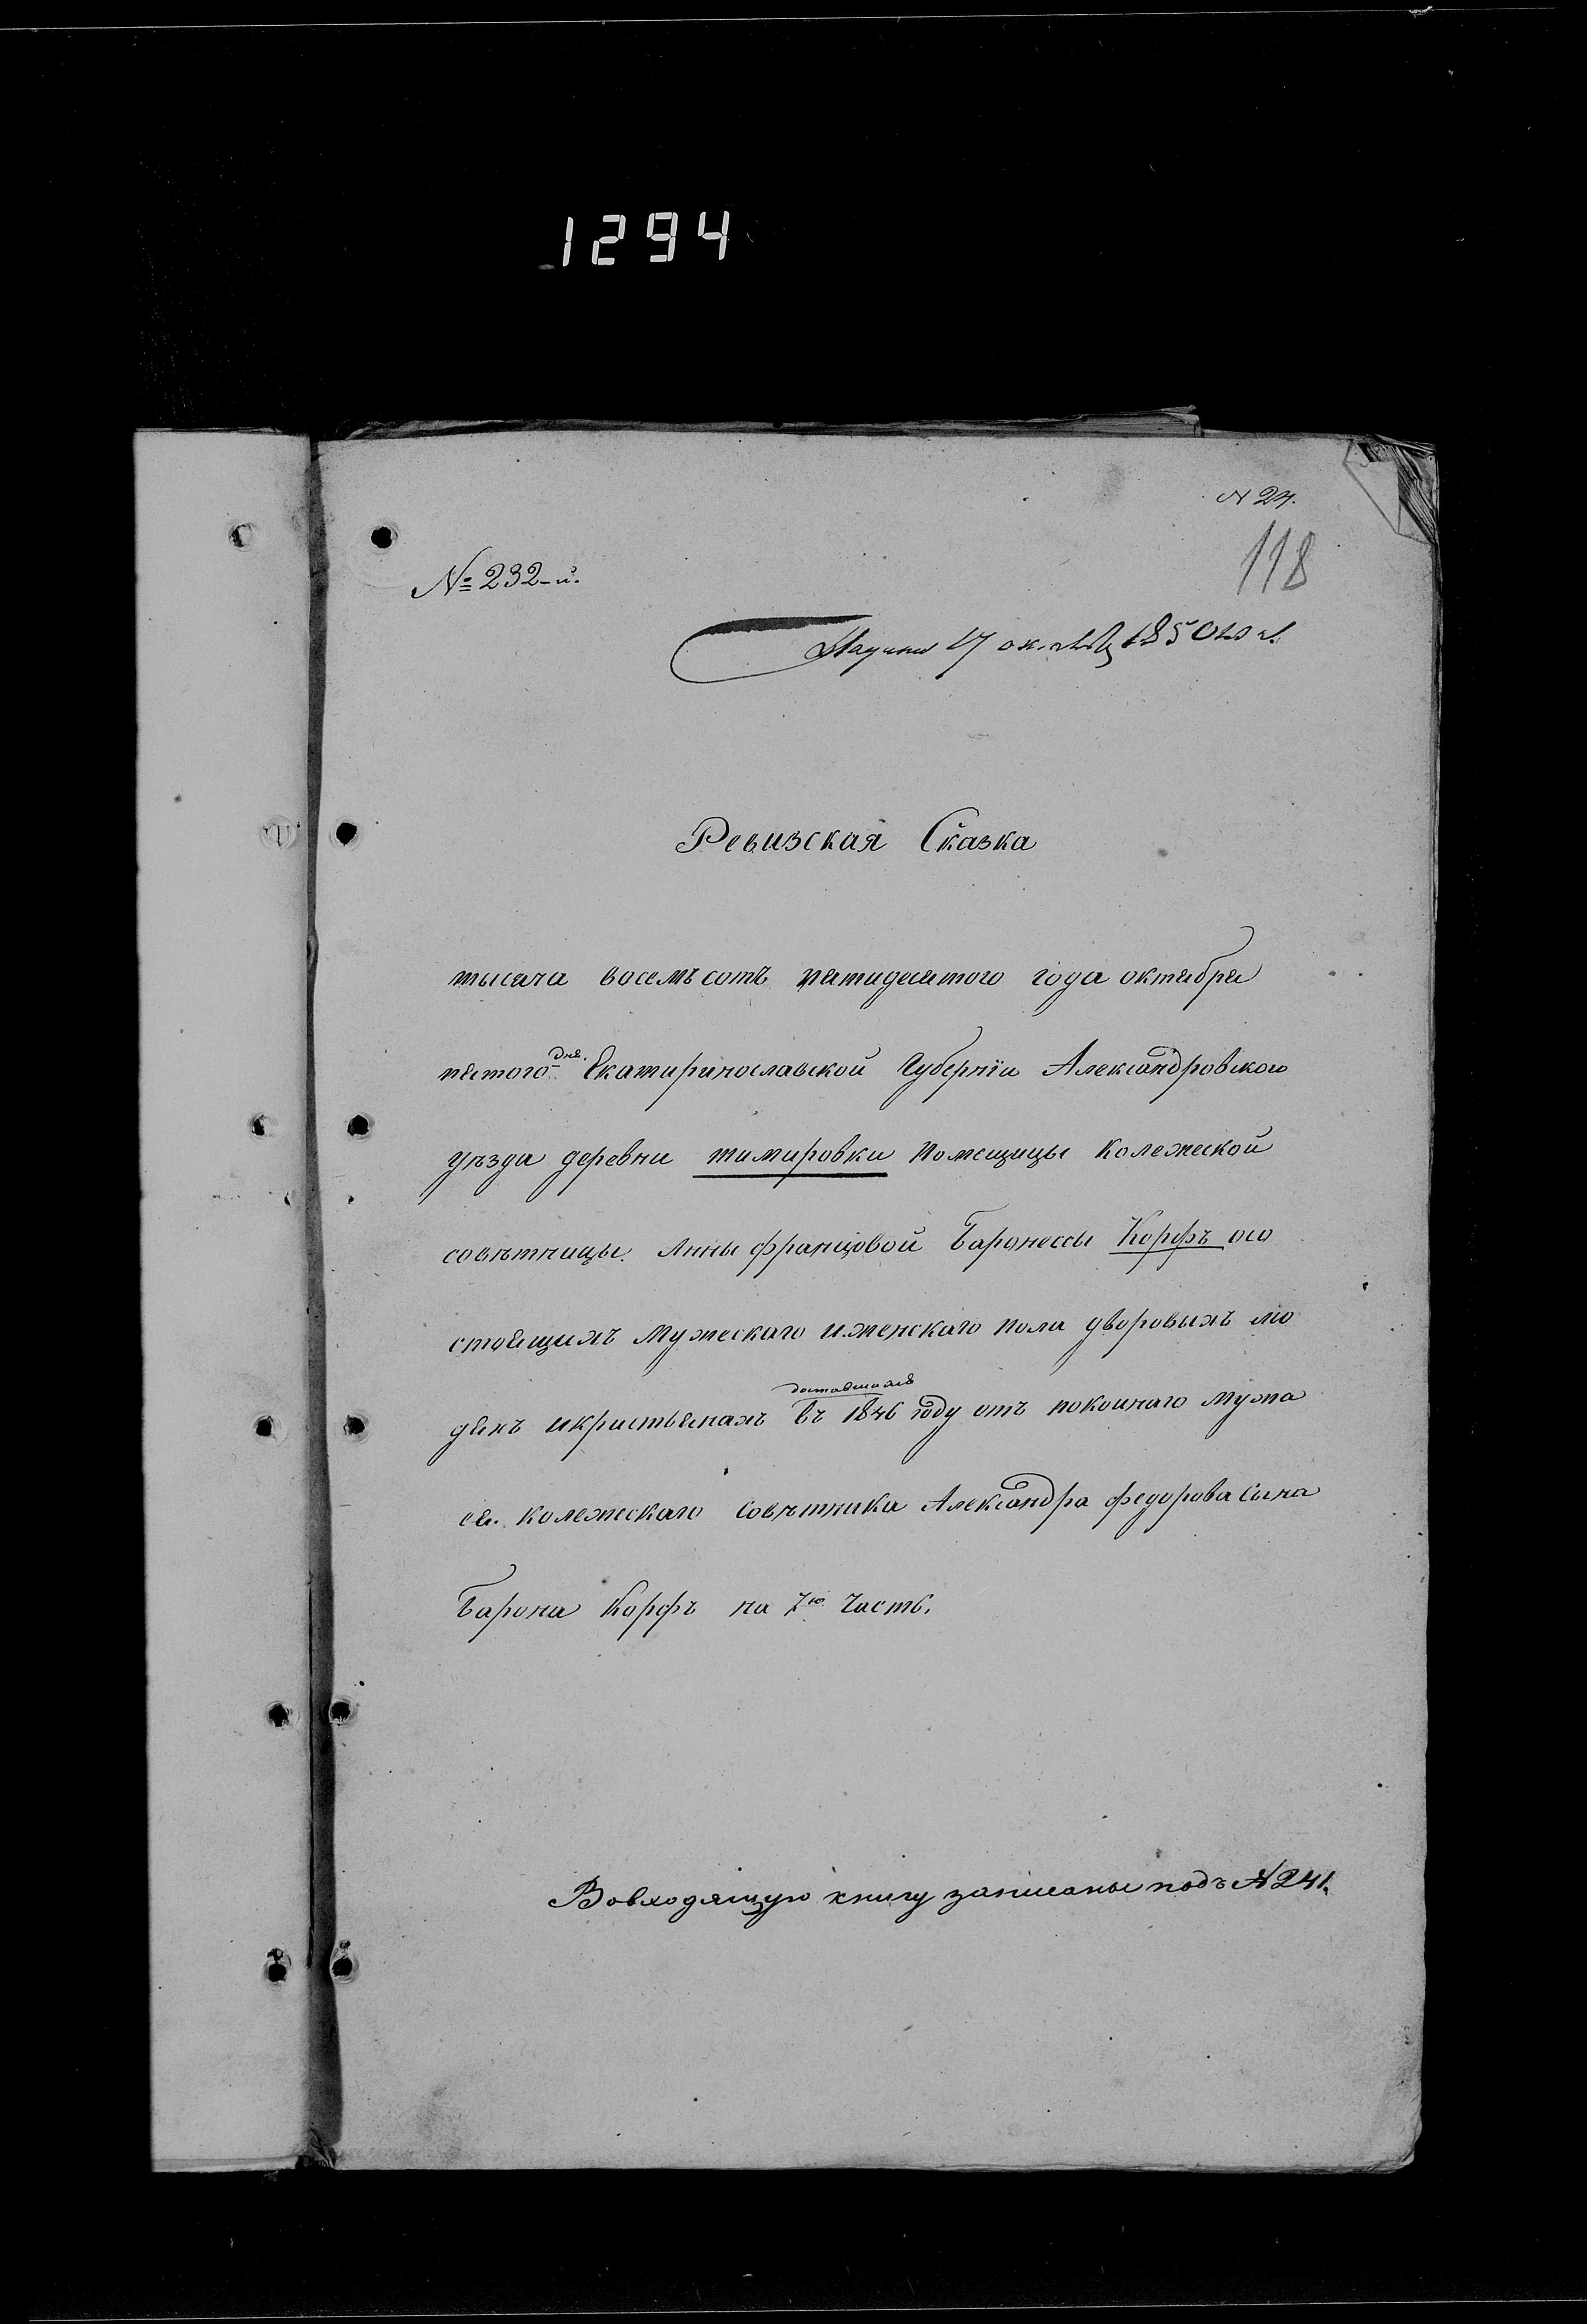 1294
№ 24.
118
№ 232-й.
17 1850
Ревизская Сказка
тысяча восемъ сотъ пятидесятого года октября
пятого дня. Екатиринославской Губернiи Александровского
уѣзда деревни тимировки помещицы Колежеской
совѣтницы Анны францовой Баронессы Корфъ осо
стоящихъ мужескаго и женскаго пола дворовыхъ лю
дяхъ икристьянахъ доставшихъ въ 1846 году отъ покоинаго мужа
ея. колежескаго Совѣтника Александра федорова Сына
Барона Корфъ на 7ю Часть.
Вовходящую книгу записаны подъ № 241.